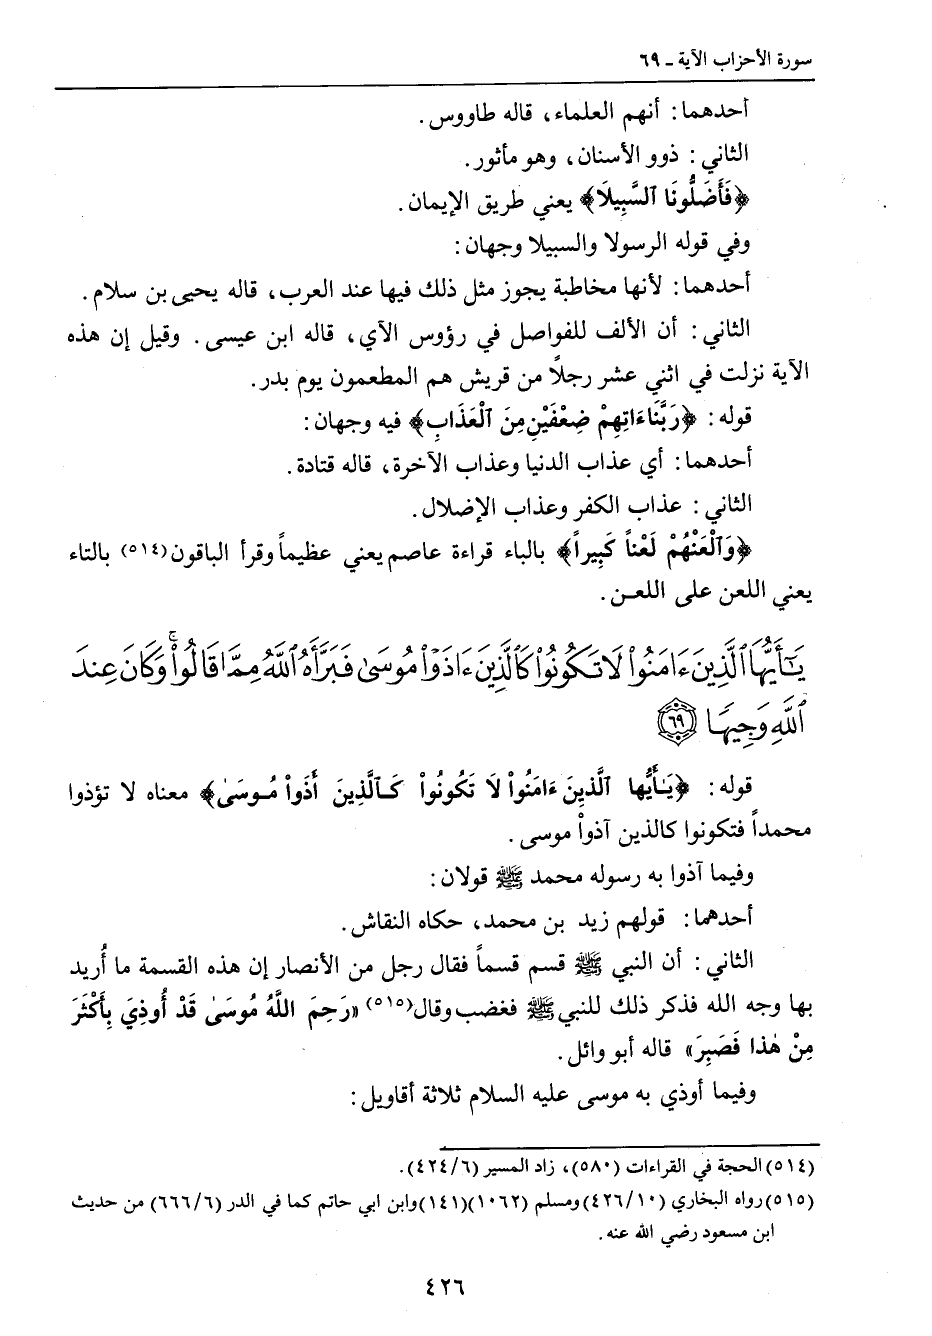 سورة الأحزاب الآية ـ ٦٩
أحدهما: أنهم العلماء، قاله طاووس.
الثاني: ذوو الأسنان، وهو مأثور.
﴿فَأَضَلُّونَا ٱلسَّبِيلَا﴾ يعني طريق الإيمان.
وفي قوله الرسولا والسبيلا وجهان:
أحدهما: لأنها مخاطبة يجوز مثل ذلك فيها عند العرب، قاله يحيى بن سلام.
الثاني: أن الألف للفواصل في رؤوس الآي، قاله ابن عيسى. وقيل إن هذه
الآية نزلت في اثني عشر رجلاً من قريش هم المطعمون يوم بدر.
قوله: ﴿رَبَّنَاءَاتِهِمْ ضِعْفَيْنِ مِنَ ٱلْعَذَابِ﴾ فيه وجهان:
أحدهما: أي عذاب الدنيا وعذاب الآخرة، قاله قتادة.
الثاني: عذاب الكفر وعذاب الإضلال.
﴿وَٱلْعَنْهُمْ لَعْناً كَبِيراً﴾ بالباء قراءة عاصم يعني عظيماً وقرأ الباقون(٥١٤) بالتاء
يعني اللعن على اللعـن.
يَـٰٓأَيُّهَا ٱلَّذِينَ ءَامَنُوا۟ لَا تَكُونُوا۟ كَٱلَّذِينَ ءَاذَوْا۟ مُوسَىٰ فَبَرَّأَهُ ٱللَّهُ مِمَّا قَالُوا۟ۚ وَكَانَ عِندَ
ٱللَّهِ وَجِيهًا ٦٩
قوله: ﴿يَـٰأَيُّها ٱلَّذِينَ ءَامَنُواْ لَا تَكُونُواْ كَـٱلَّذِينَ أَذَواْ مُـوسَىٰ﴾ معناه لا تؤذوا
محمداً فتكونوا كالذين آذواْ موسى.
وفيما آذوا به رسوله محمد ﷺ قولان:
أحدهما: قولهم زيد بن محمد، حكاه النقاش.
الثاني: أن النبي ﷺ قسم قسماً فقال رجل من الأنصار إن هذه القسمة ما أُريد
بها وجه الله فذكر ذلك للنبي ﷺ فغضب وقال(٥١٥) «رَحِمَ اللَّهُ مُوسَىٰ قَدْ أُوذِيَ بِأَكْثَرَ
مِنْ هٰذا فَصَبِرَ» قاله أبو وائل.
وفيما أوذي به موسى عليه السلام ثلاثة أقاويل:
(٥١٤) الحجة في القراءات (٥٨٠)، زاد المسير (٤٢٤/٦).
(٥١٥) رواه البخاري (٤٢٦/١٠) ومسلم (١٠٦٢)(١٤١) وابن ابي حاتم كما في الدر (٦٦٦/٦) من حديث
ابن مسعود رضي الله عنه.
٤٢٦